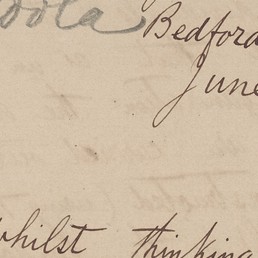 Bedford
June
whilst thinking